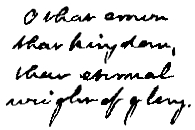 O that crown
that kingdom,
that eternal
weight of glory.